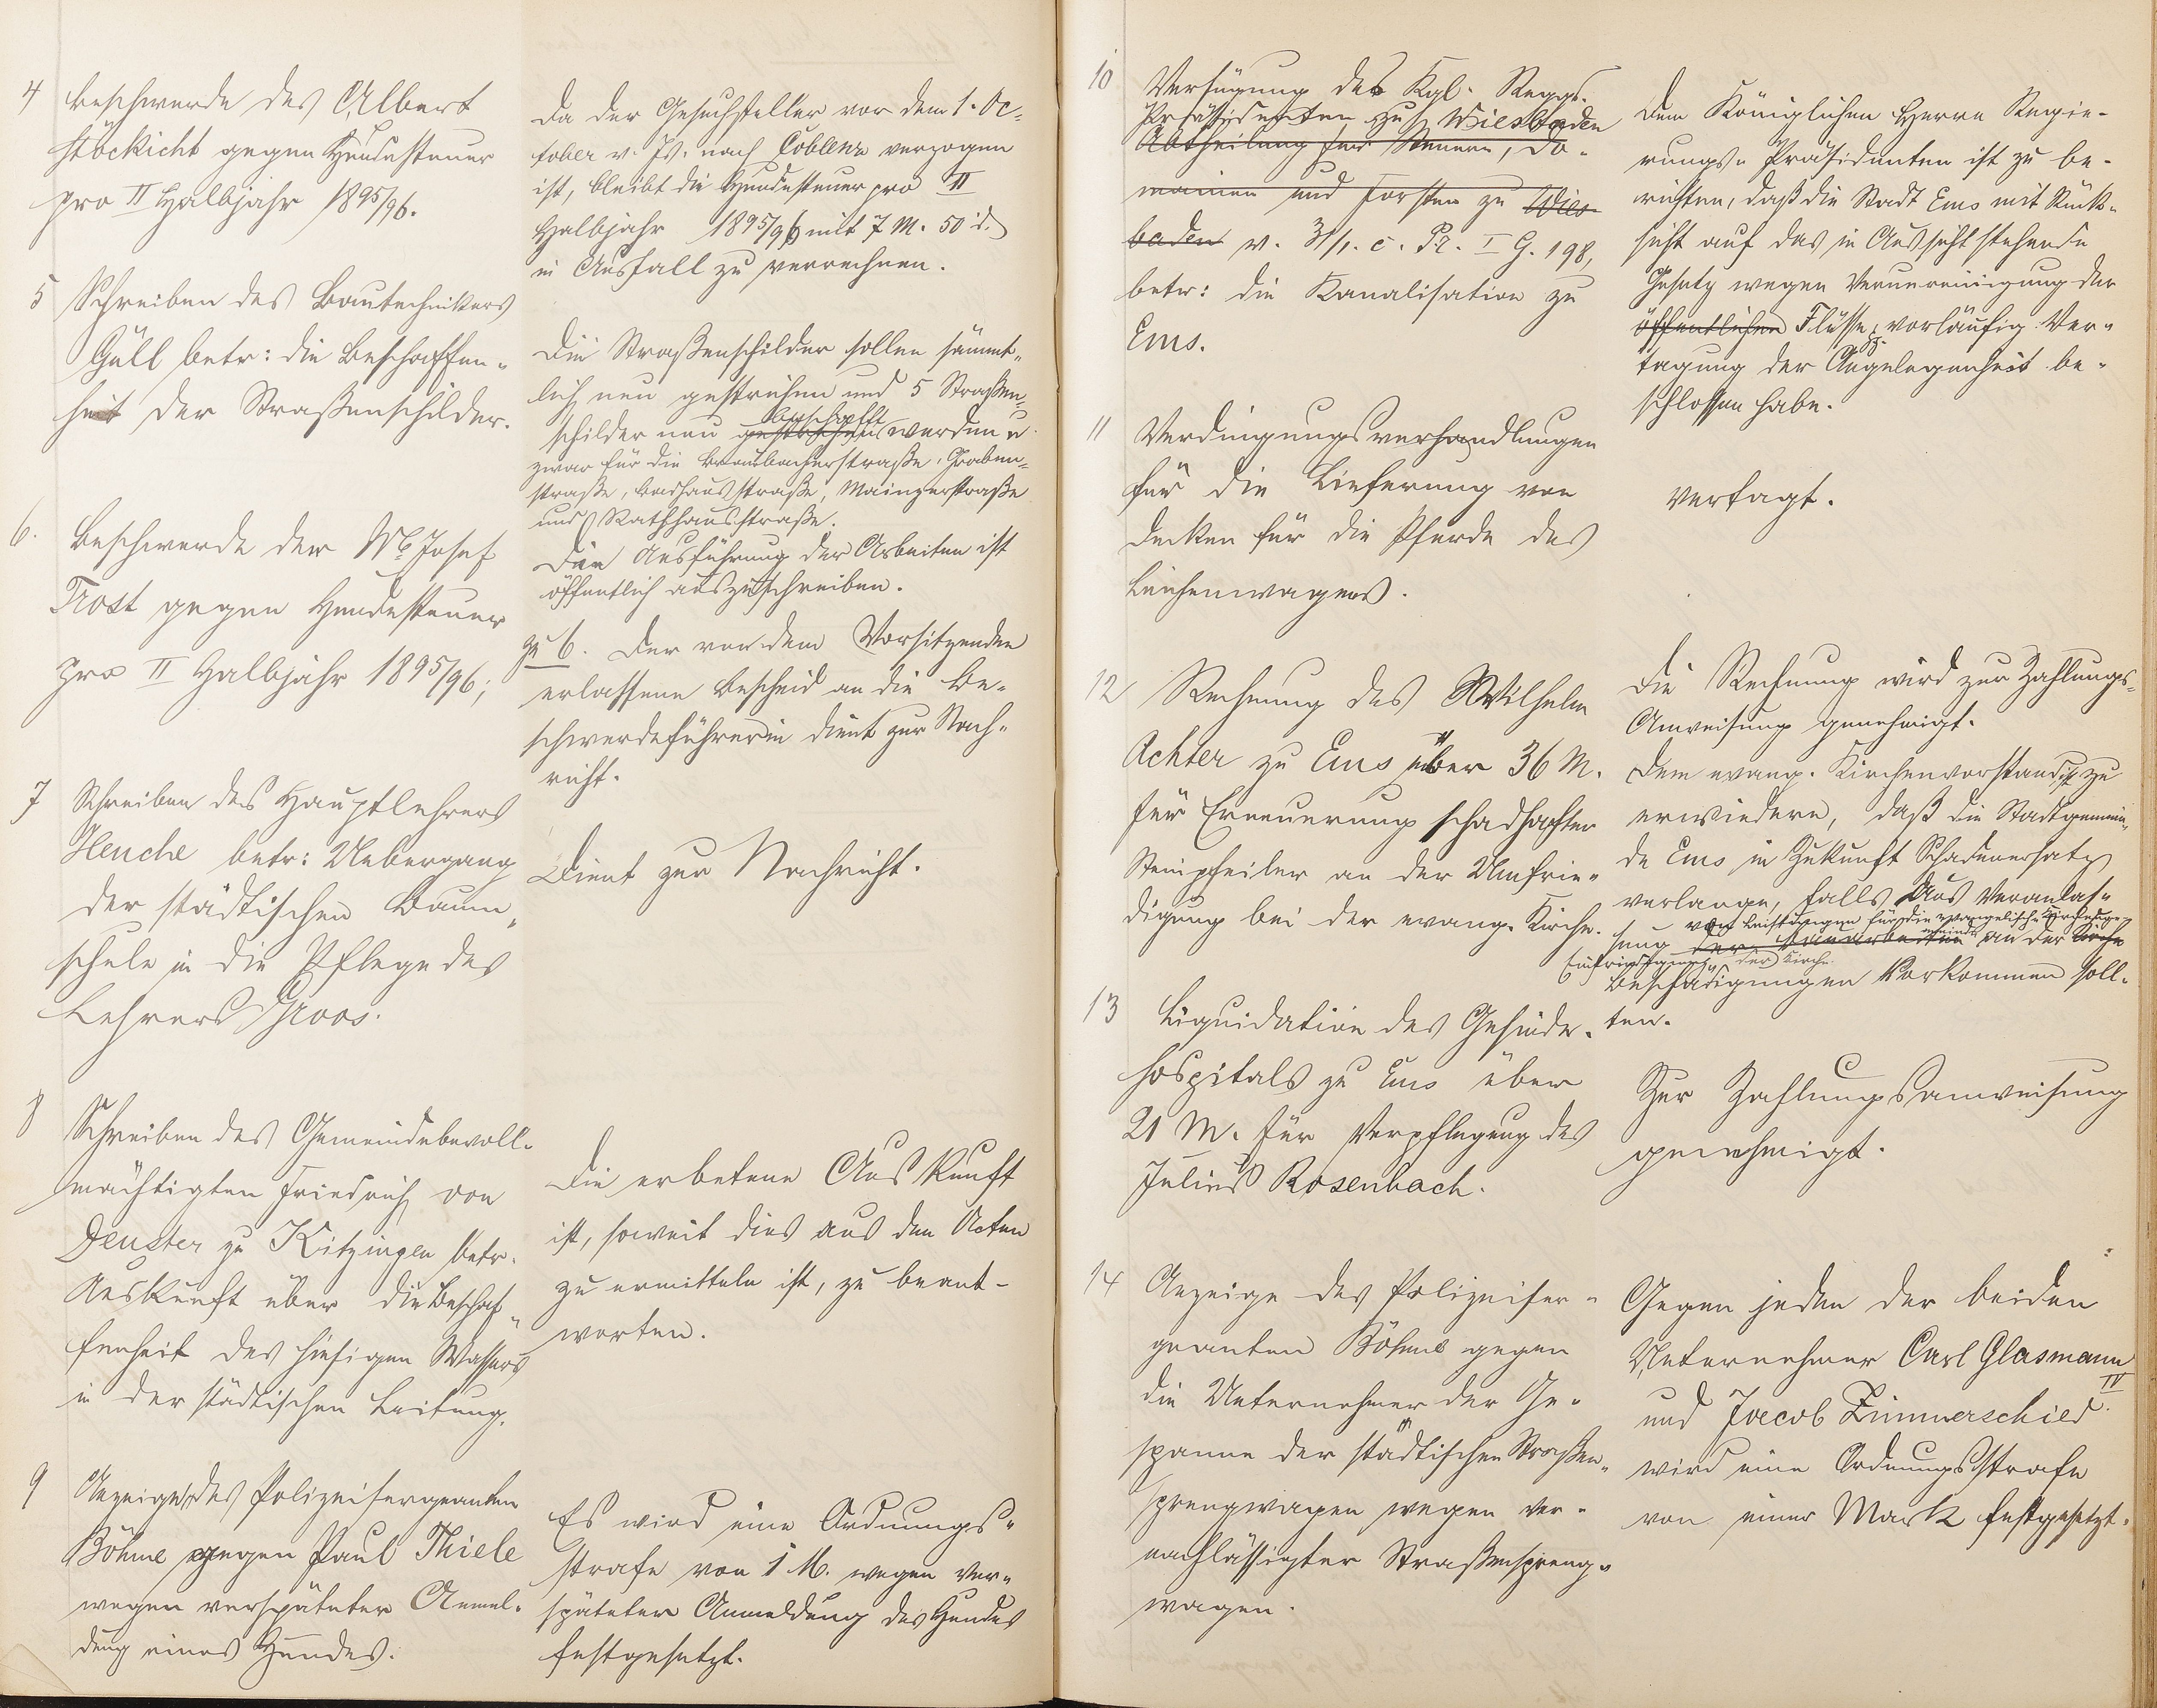 4 Beschwerde des Albert
Stöckicht gegen Hundesteuer
pro II Halbjahr 1895/96.
Da der Gesuchsteller vor dem 1. Oc-
tober v. Js. nach Coblenz verzogen
ist, bleibt die Hundesteuer pro II
Halbjahr 1895/96 mit 7 M. 50 d.
in Ausfall zu verrechnen.
5 Schreiben des Bautechnikers
Güll betr: die Beschaffen-
heit der Straßenschilder.
Die Straßenschilder sollen sämmt-
lich neu gestrichen und 5 Straßen-
beschafft
schilder neu gestrichen werden u.
zwar für die Braubacherstraße, Graben-
straße, Badhausstraße, Mainzerstraße
und Rathhausstraße.
Die Ausführung der Arbeiten ist
öffentlich auszuschreiben.
6. Beschwerde der Josef
Trost gegen Hundesteuer
pro II Halbjahr 1895/96;
zu 6. Der von dem Vorsitzenden
erlassene Bescheid an die Be-
schwerdeführerin dient zur Nach-
richt.
7 Schreiben des Hauptlehrers
Heuche betr: Uebergang
der städtischen Baum-
schule in die Pflege des
Lehrers Groos.
Dient zur Nachricht.
8 Schreiben des Gemeindebevoll-
mächtigten Friedrich von
Deuster zu Kitzingen betr.
Auskunft über die Beschaf-
fenheit des hiesigen Wassers
in der städtischen Leitung.
Die erbetene Auskunft
ist, soweit dies aus den Acten
zu ermitteln ist, zu beant-
worten.
9 Anzeige des Polizeisergeanten
Böhme gegen Paul Thiele
wegen verspäteter Anmel-
dung eines Hundes.
Es wird eine Ordnungs-
strafe von 1 M. wegen ver-
späteter Anmeldung des Hundes
festgesetzt.
10 Verfügung des Kgl. Reggs.
Präsidenten zu Wiesbaden
Abtheilung für Steuern, Do-
mainen und Forsten zu Wies-
baden v. 31/1. c. Pr. I G. 198,
betr: die Kanalisation zu
Ems.
Dem Königlichen Herrn Regie-
rungs-Präsidenten ist zu be-
richten, daß die Stadt Ems mit Rück-
sicht auf das in Aussicht stehende
Gesetz wegen Verunreinigung der
öffentlichen Flüsse pp. vorläufig Ver-
tagung der Angelegenheit be-
schlossen habe.
11 Verdingungsverhandlungen
für die Lieferung von
Decken für die Pferde des
Leichenwagens.
Vertagt.
12 Rechnung des Wilhelm
Achter zu Ems über 36 M.
für Erneuerung schadhafter
Steinpfeiler an der Umfrie-
digung bei der evang. Kirche.
Die Rechnung wird zur Zahlungs-
Anweisung genehmigt.
Dem evang. Kirchenvorstand ist zu
erwiedern, daß die Stadtgemein-
de Ems in Zukunft Schadenersatz
verlange, falls aus Veranlas-
von Leistungen für die evangelische Kirchenge-
meinde
sung der an der Kirche
Einfriedigung der Kirche
Beschädigungen vorkommen soll-
ten.
13 Liquidation des Gesinde-
hospitals zu Ems über
21 M. für Verpflegung des
Julius Rosenbach.
Zur Zahlungsanweisung
genehmigt.
14 Anzeige des Polizeiser-
geanten Böhme gegen
die Unternehmer der Ge-
spanne der städtischen Straßen-
sprengwagen wegen ver-
nachlässigter Straßenspreng-
wagen.
Gegen jeden der beiden
Unternehmer Carl Glasmann
und Jacob Zimmerschied IV.
wird eine Ordnungsstrafe
von einer Mark festgesetzt.